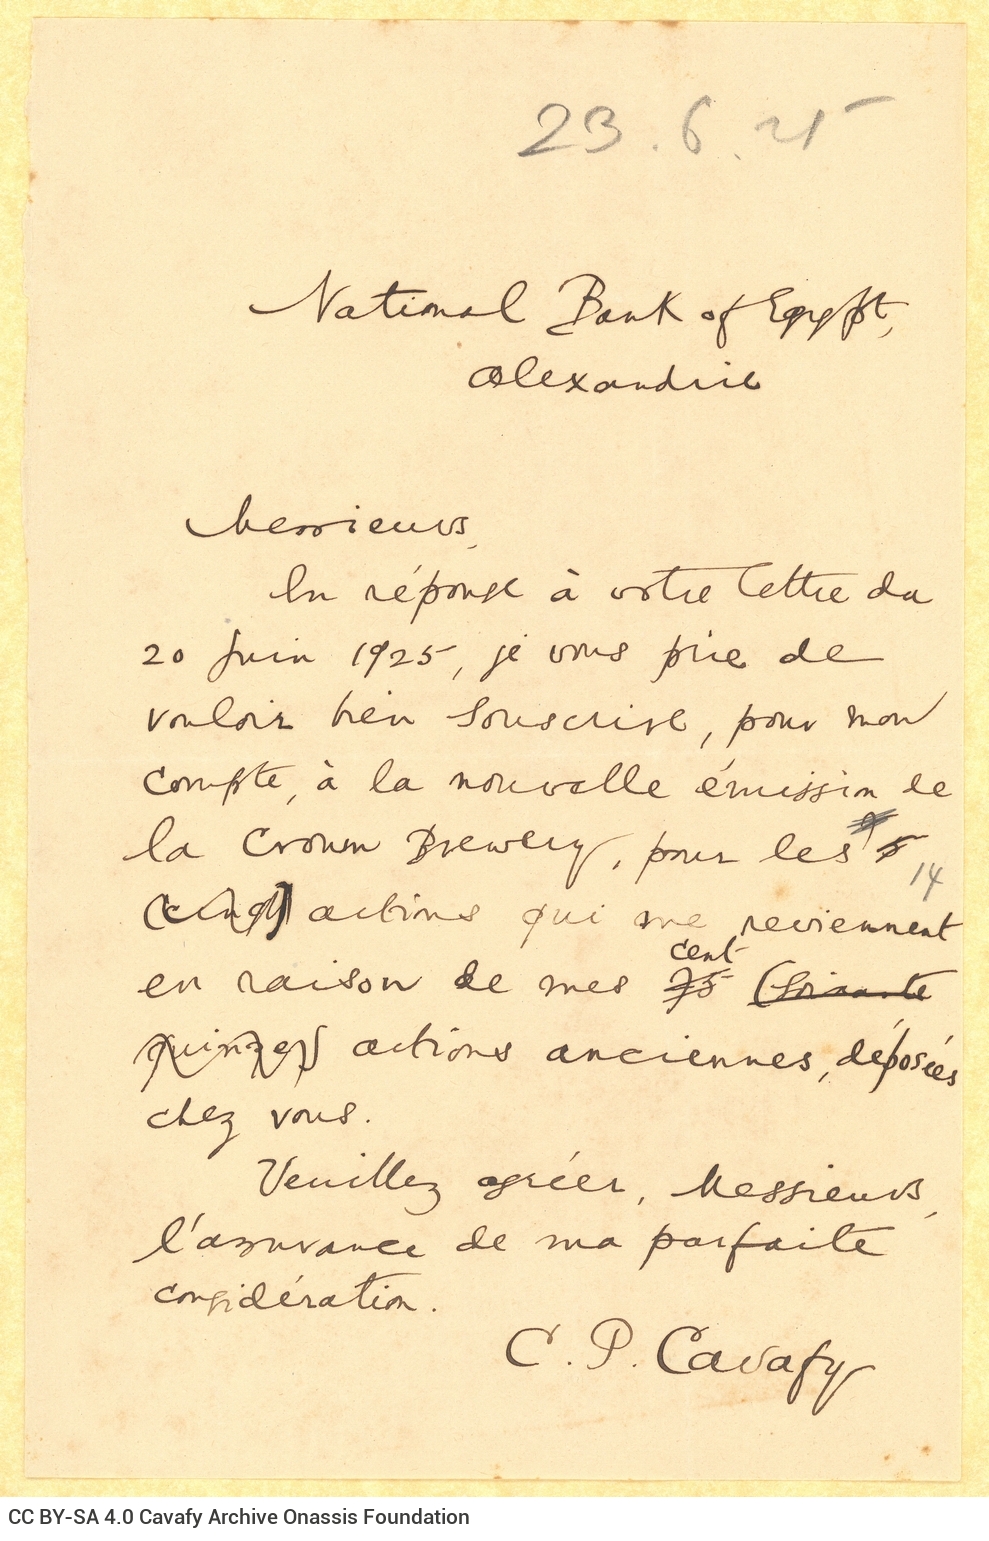 23.6.25
National Bank of Egypt,
Alexandrie
Messieurs,
En réponse à votre lettre du
20 Juin 1925, je vous prie de
vouloir bien souscrire, pour mon
compte, à la nouvelle émission de
la Crown Brewery, pour les 5
14
(cinq) actions qui me reviennent
cent
en raison de mes 75 (soixante
quinze) actions anciennes, déposées
chez vous.
Veuillez agréer, Messieurs,
l'assurance de ma parfaite
considération.
C. P. Cavafy
CC BY-SA 4.0 Cavafy Archive Onassis Foundation